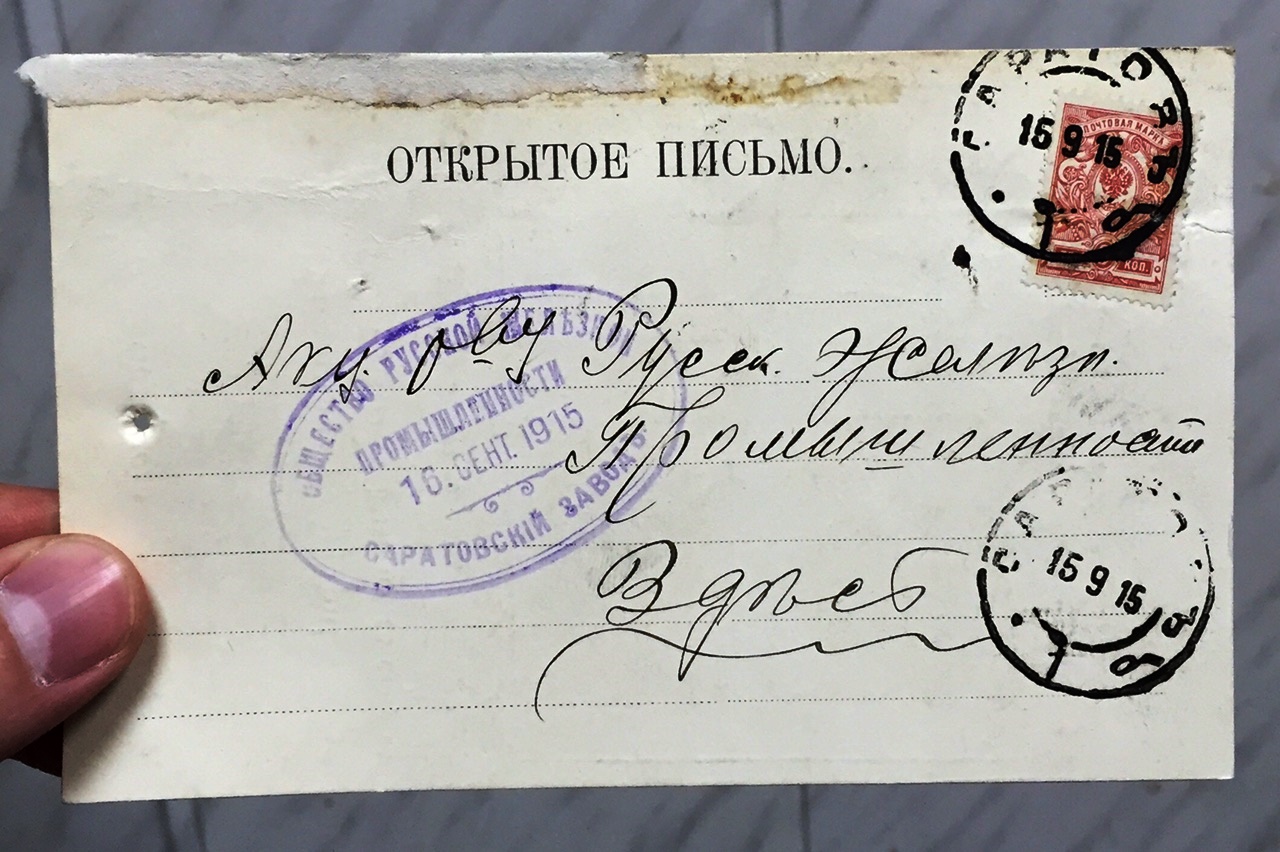 ОТКРЫТОЕ ПИСЬМО.
САРАТОВЪ
15 9 15
ПОЧТОВАЯ МАРКА
КОП.
Акц. Русск. Желѣзн.
Промышленности
Здѣсь
ОБЩЕСТВО РУССКОЙ ЖЕЛѢЗНОЙ
ПРОМЫШЛЕННОСТИ
16. СЕНТ. 1915
САРАТОВСКІЙ ЗАВОДЪ
САРАТОВЪ
15 9 15